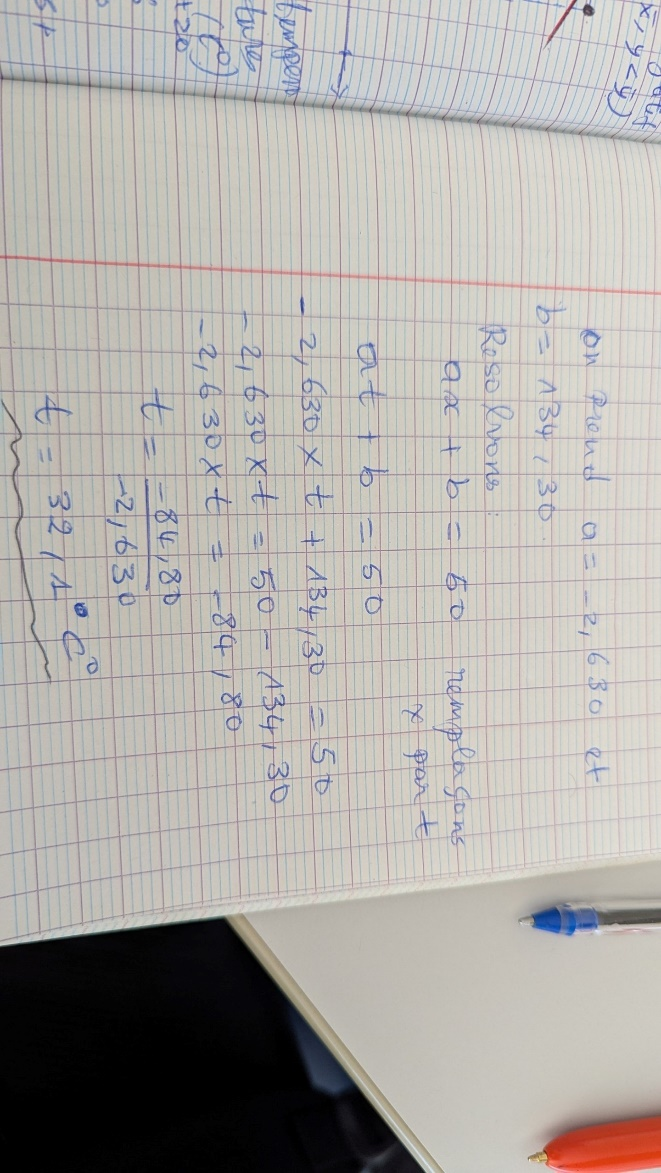 x̄, y < ȳ)
tempera
ture
(t°)
+20
on prend a = -2,630 et
b = 134,30.
Résolvons :
ax + b = 50 remplaçons
x par t
at + b = 50
-2,630 x t + 134,30 = 50
-2,630 x t = 50 - 134,30
-2,630 x t = -84,80
t = -84,80
-2,630
t = 32,1° C°